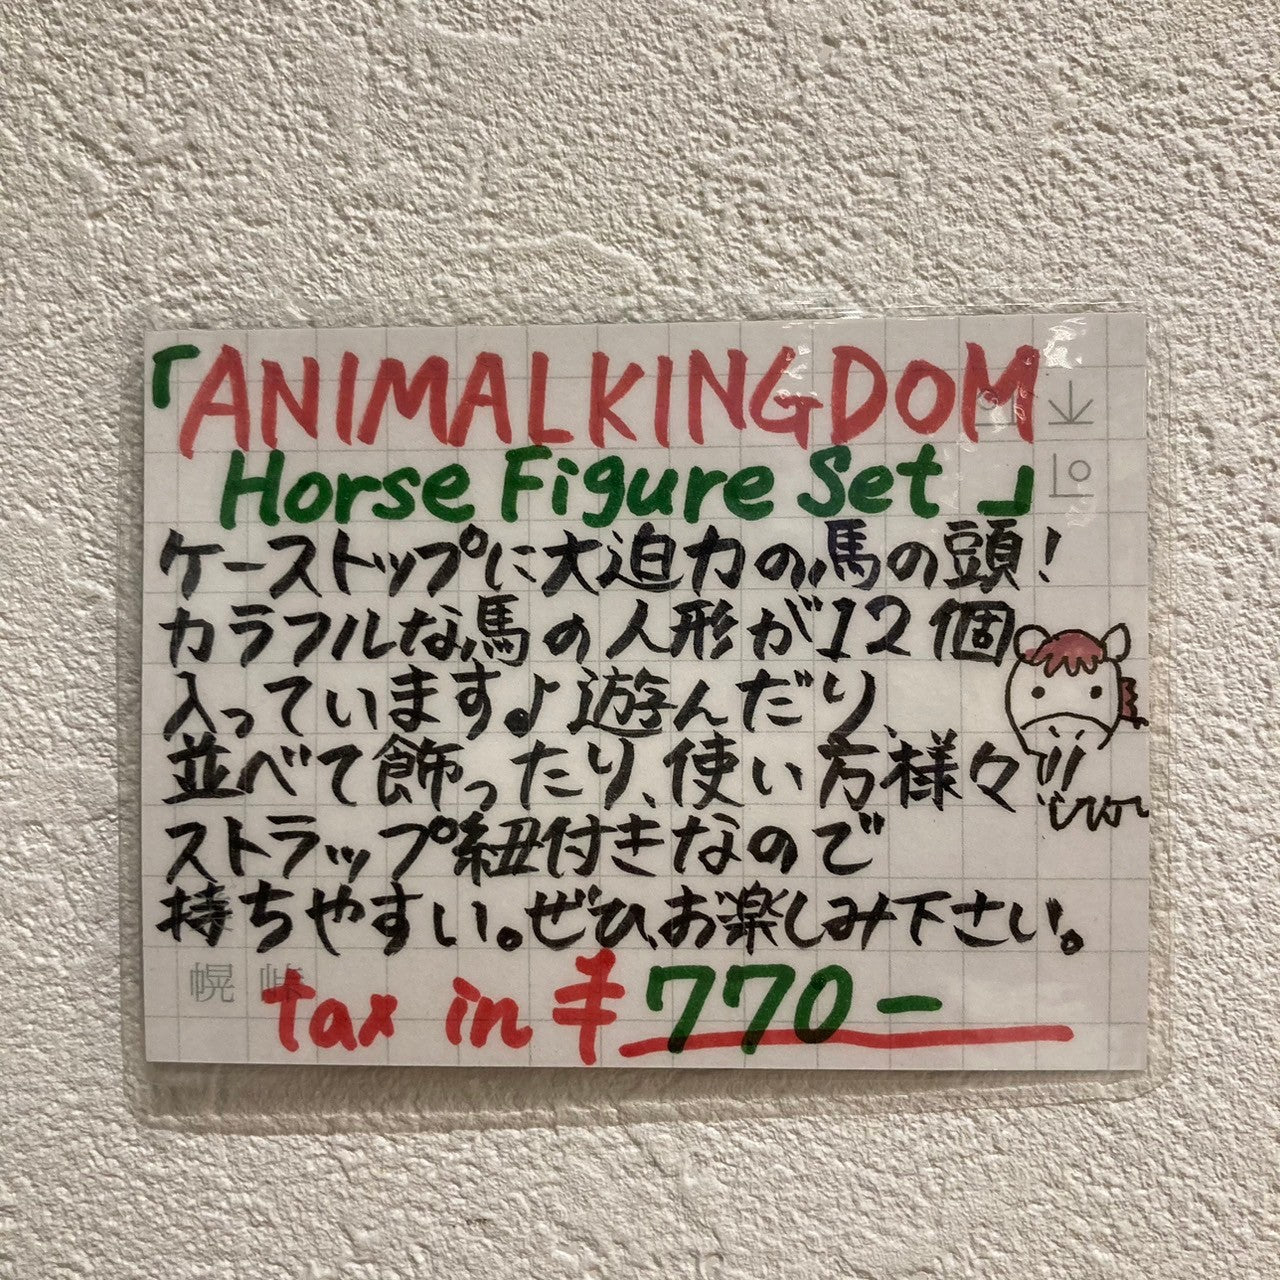 「ANIMALKINGDOM
Horse Figure Set」
ケーストップに大迫力の馬の頭！
カラフルな馬の人形が12個
入っています♪遊んだり、
並べて飾ったり、使い方様々
ストラップ紐付きなので
持ちやすい。ぜひ、お楽しみ下さい。
幌
tax in ¥770-